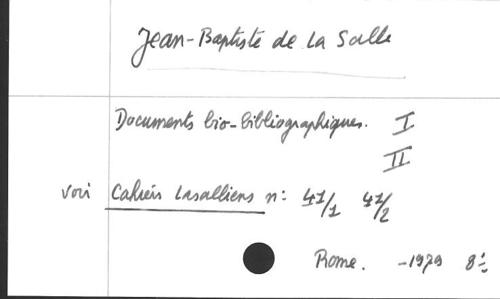 Jean-Baptiste de La Salle
Documents bio-bibliographiques. I
II
voir Cahiers Lasalliens n: 41/1 41/2
Rome. -1979 8°